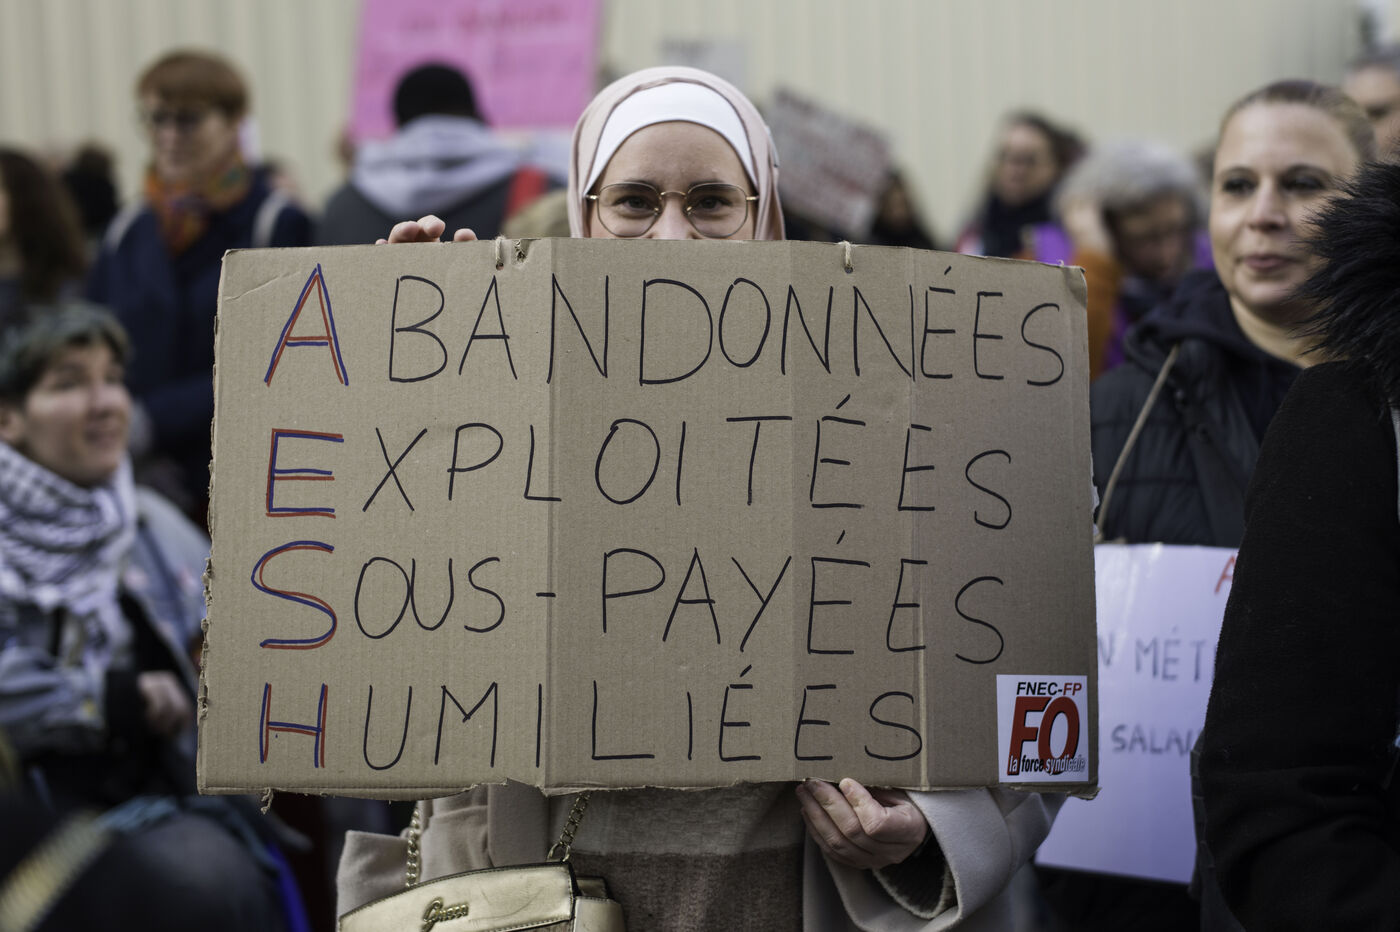 ABANDONNÉES
EXPLOITÉES
SOUS-PAYÉES
HUMILIÉES
FNEC-FP
FO
la force syndicale
MÉT
SALAI
Guess